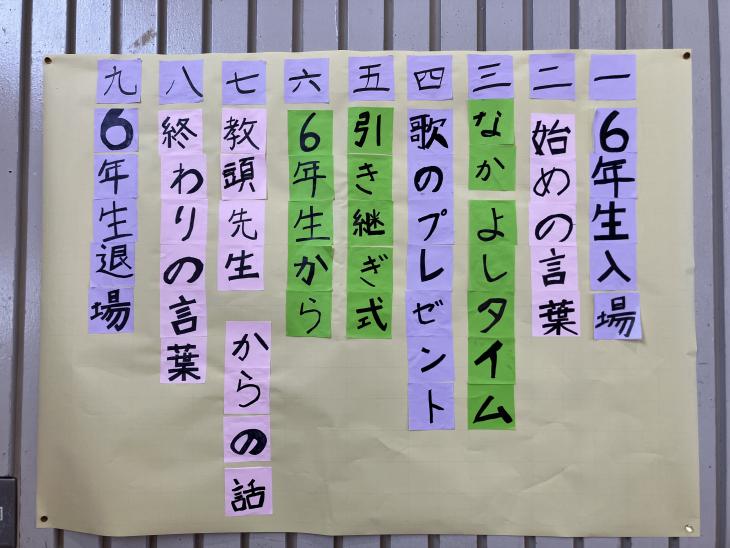 一 6年生入場
二 始めの言葉
三 なか よしタイム
四 歌のプレゼント
五 引き継ぎ式
六 6年生から
七 教頭先生 からの話
八 終わりの言葉
九 6年生退場